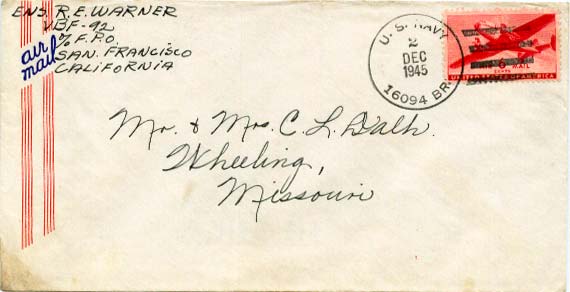 ENS. R. E. WARNER
VBF-92
℅ F.P.O.
SAN FRANCISCO
CALIFORNIA
air
mail
U. S. NAVY
2
DEC
1945
16094 BR.
6
CENTS
MAIL
UNITED STATES OF AMERICA
Mr. & Mrs. C. L. Dalh.
Wheeling,
Missouri